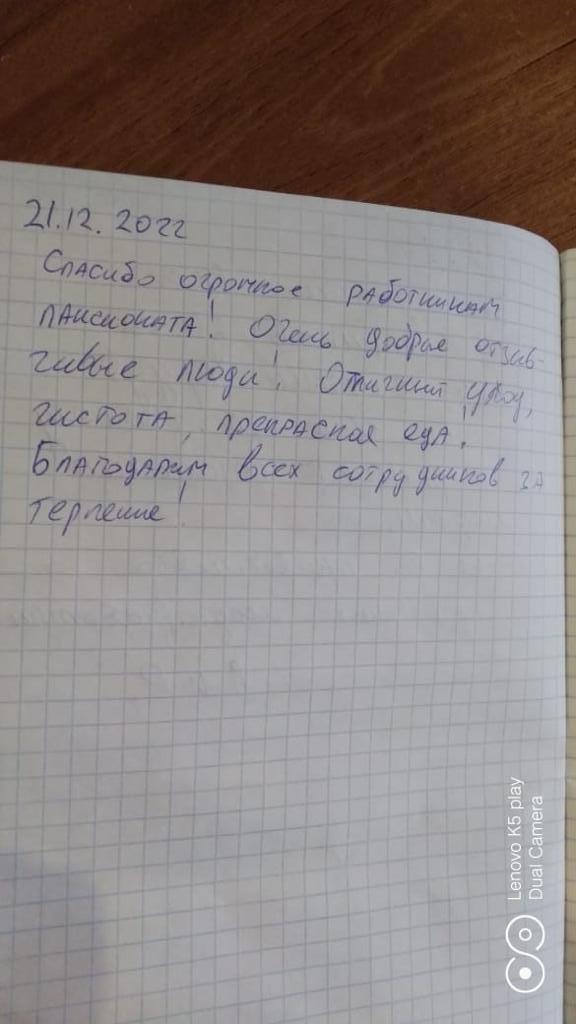 21.12.2022
Спасибо огромное работникам
пансионата! Очень добрые отзыв-
чивые люди! Отличный уход,
чистота, прекрасная еда!
Благодарим всех сотрудников за
терпение!
Lenovo K5 play
Dual Camera